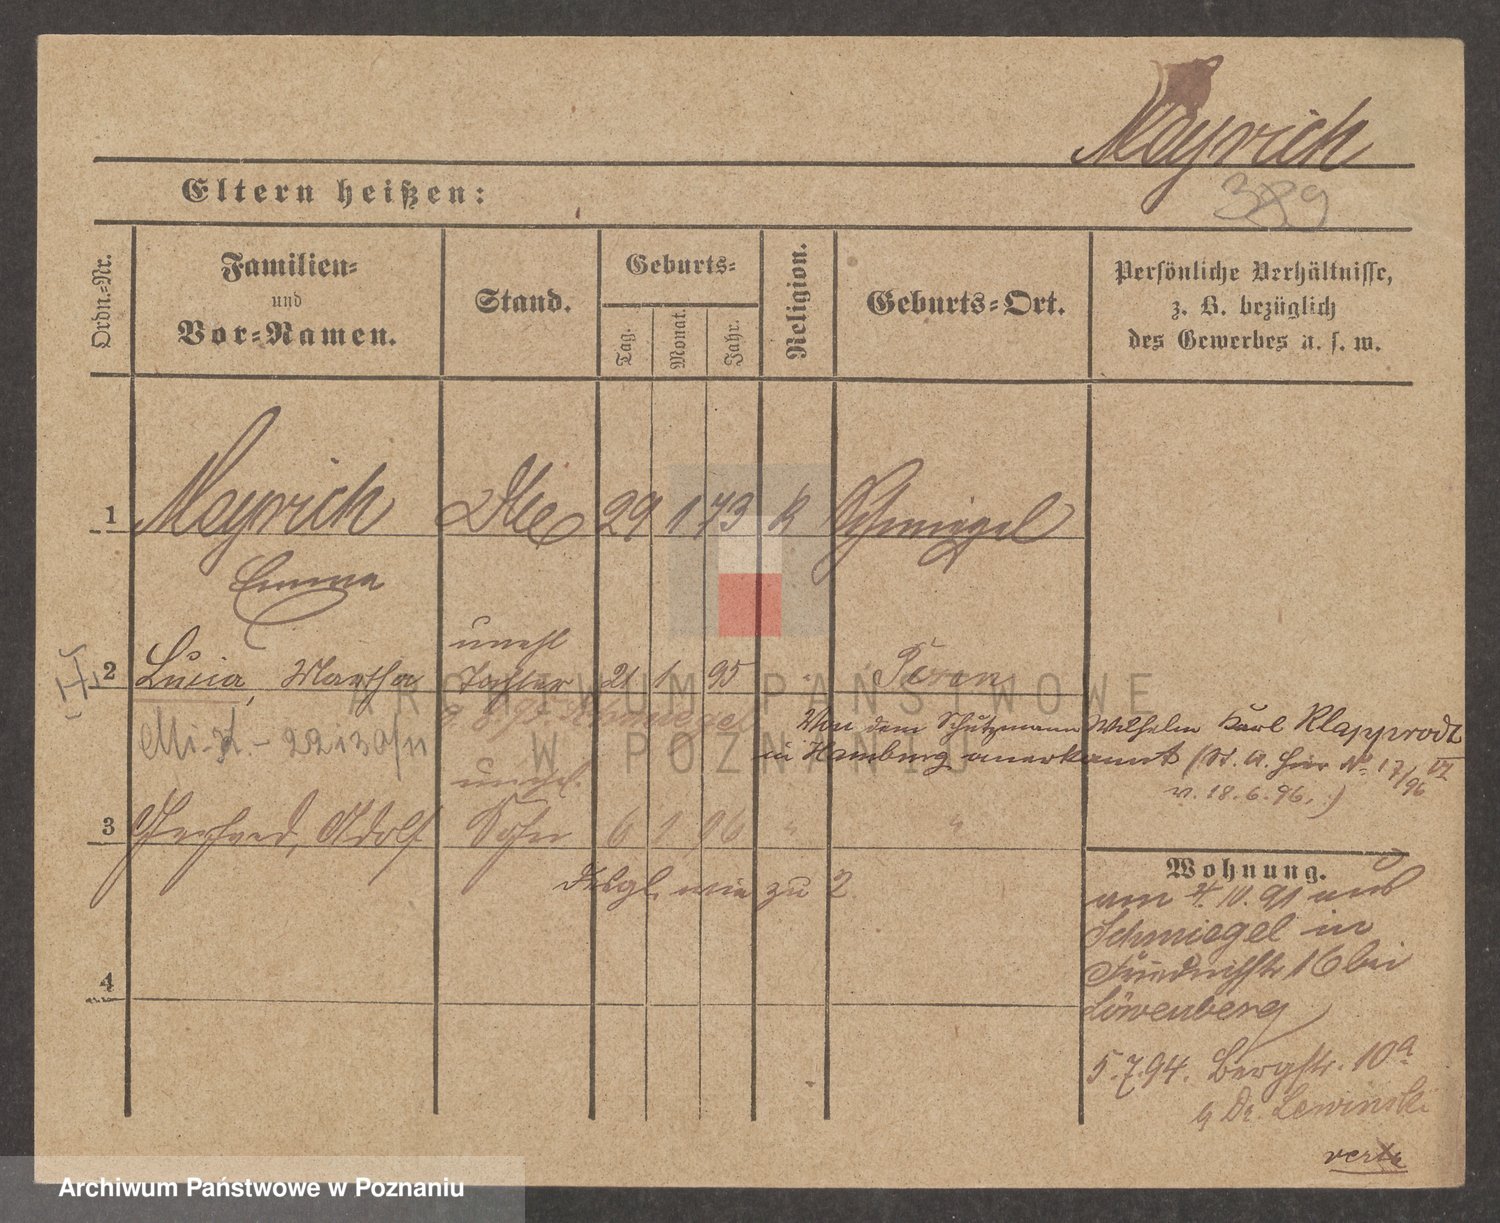 Meyrich
389
Eltern heißen:
Ordn.-Nr.
Familien-
und
Vor-Namen.
Stand.
Geburts-
Tag.
Monat.
Jahr.
Religion.
Geburts-Ort.
Persönliche Verhältnisse,
z. B. bezüglich
des Gewerbes u. s. w.
1 Meyrich 29 1 73 k Schmiegel
Emma
unehl
2 Lucia, Martha Tochter 21 1 95 Posen
9.8.95 Schmiegel
Von dem Schutzmann Wilhelm Karl Klapprodt
in Hamburg anerkannt (St. A. hier No 17/96 VI
v. 18.6.96.)
unehl.
3 Gerhard, Adolf Sohn 6 1 96 " "
Desgl. wie zu 2
Wohnung.
am 4.10.91 aus
Schmiegel in
Friedrichstr. 16 bei
Löwenberg
4
5.7.94. Bergstr. 10a
b Dr. Lewinski
verte
ARCHIWUM PAŃSTWOWE
W POZNANIU
Archiwum Państwowe w Poznaniu